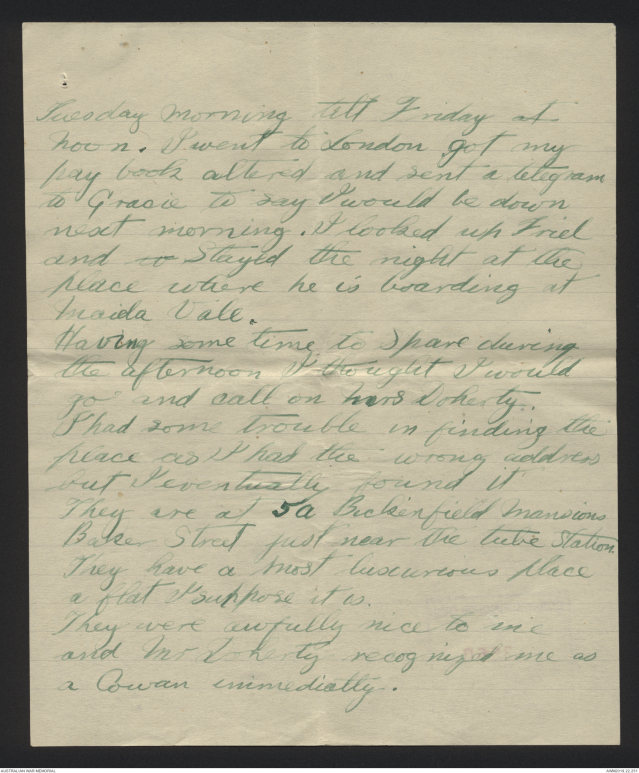 Tuesday morning till Friday at
noon. I went to London got my
pay book altered and sent a telegram
to Gracie to say I would be down
next morning. I looked up Friel
and so Stayed the night at the
place where he is boarding at
Maida Vale.
Having some time to spare during
the afternoon I thought I would
go and call on Mrs Doherty.
I had some trouble in finding the
place as I had the wrong address
but I eventually found it
They are at 5a Bickenfield Mansions
Baker Street just near the tube Station.
They have a most luxurious place
a flat I suppose it is.
They were awfully nice to me
and Mr Doherty recognized me as
a Cowan immediatly.
AUSTRALIAN WAR MEMORIAL